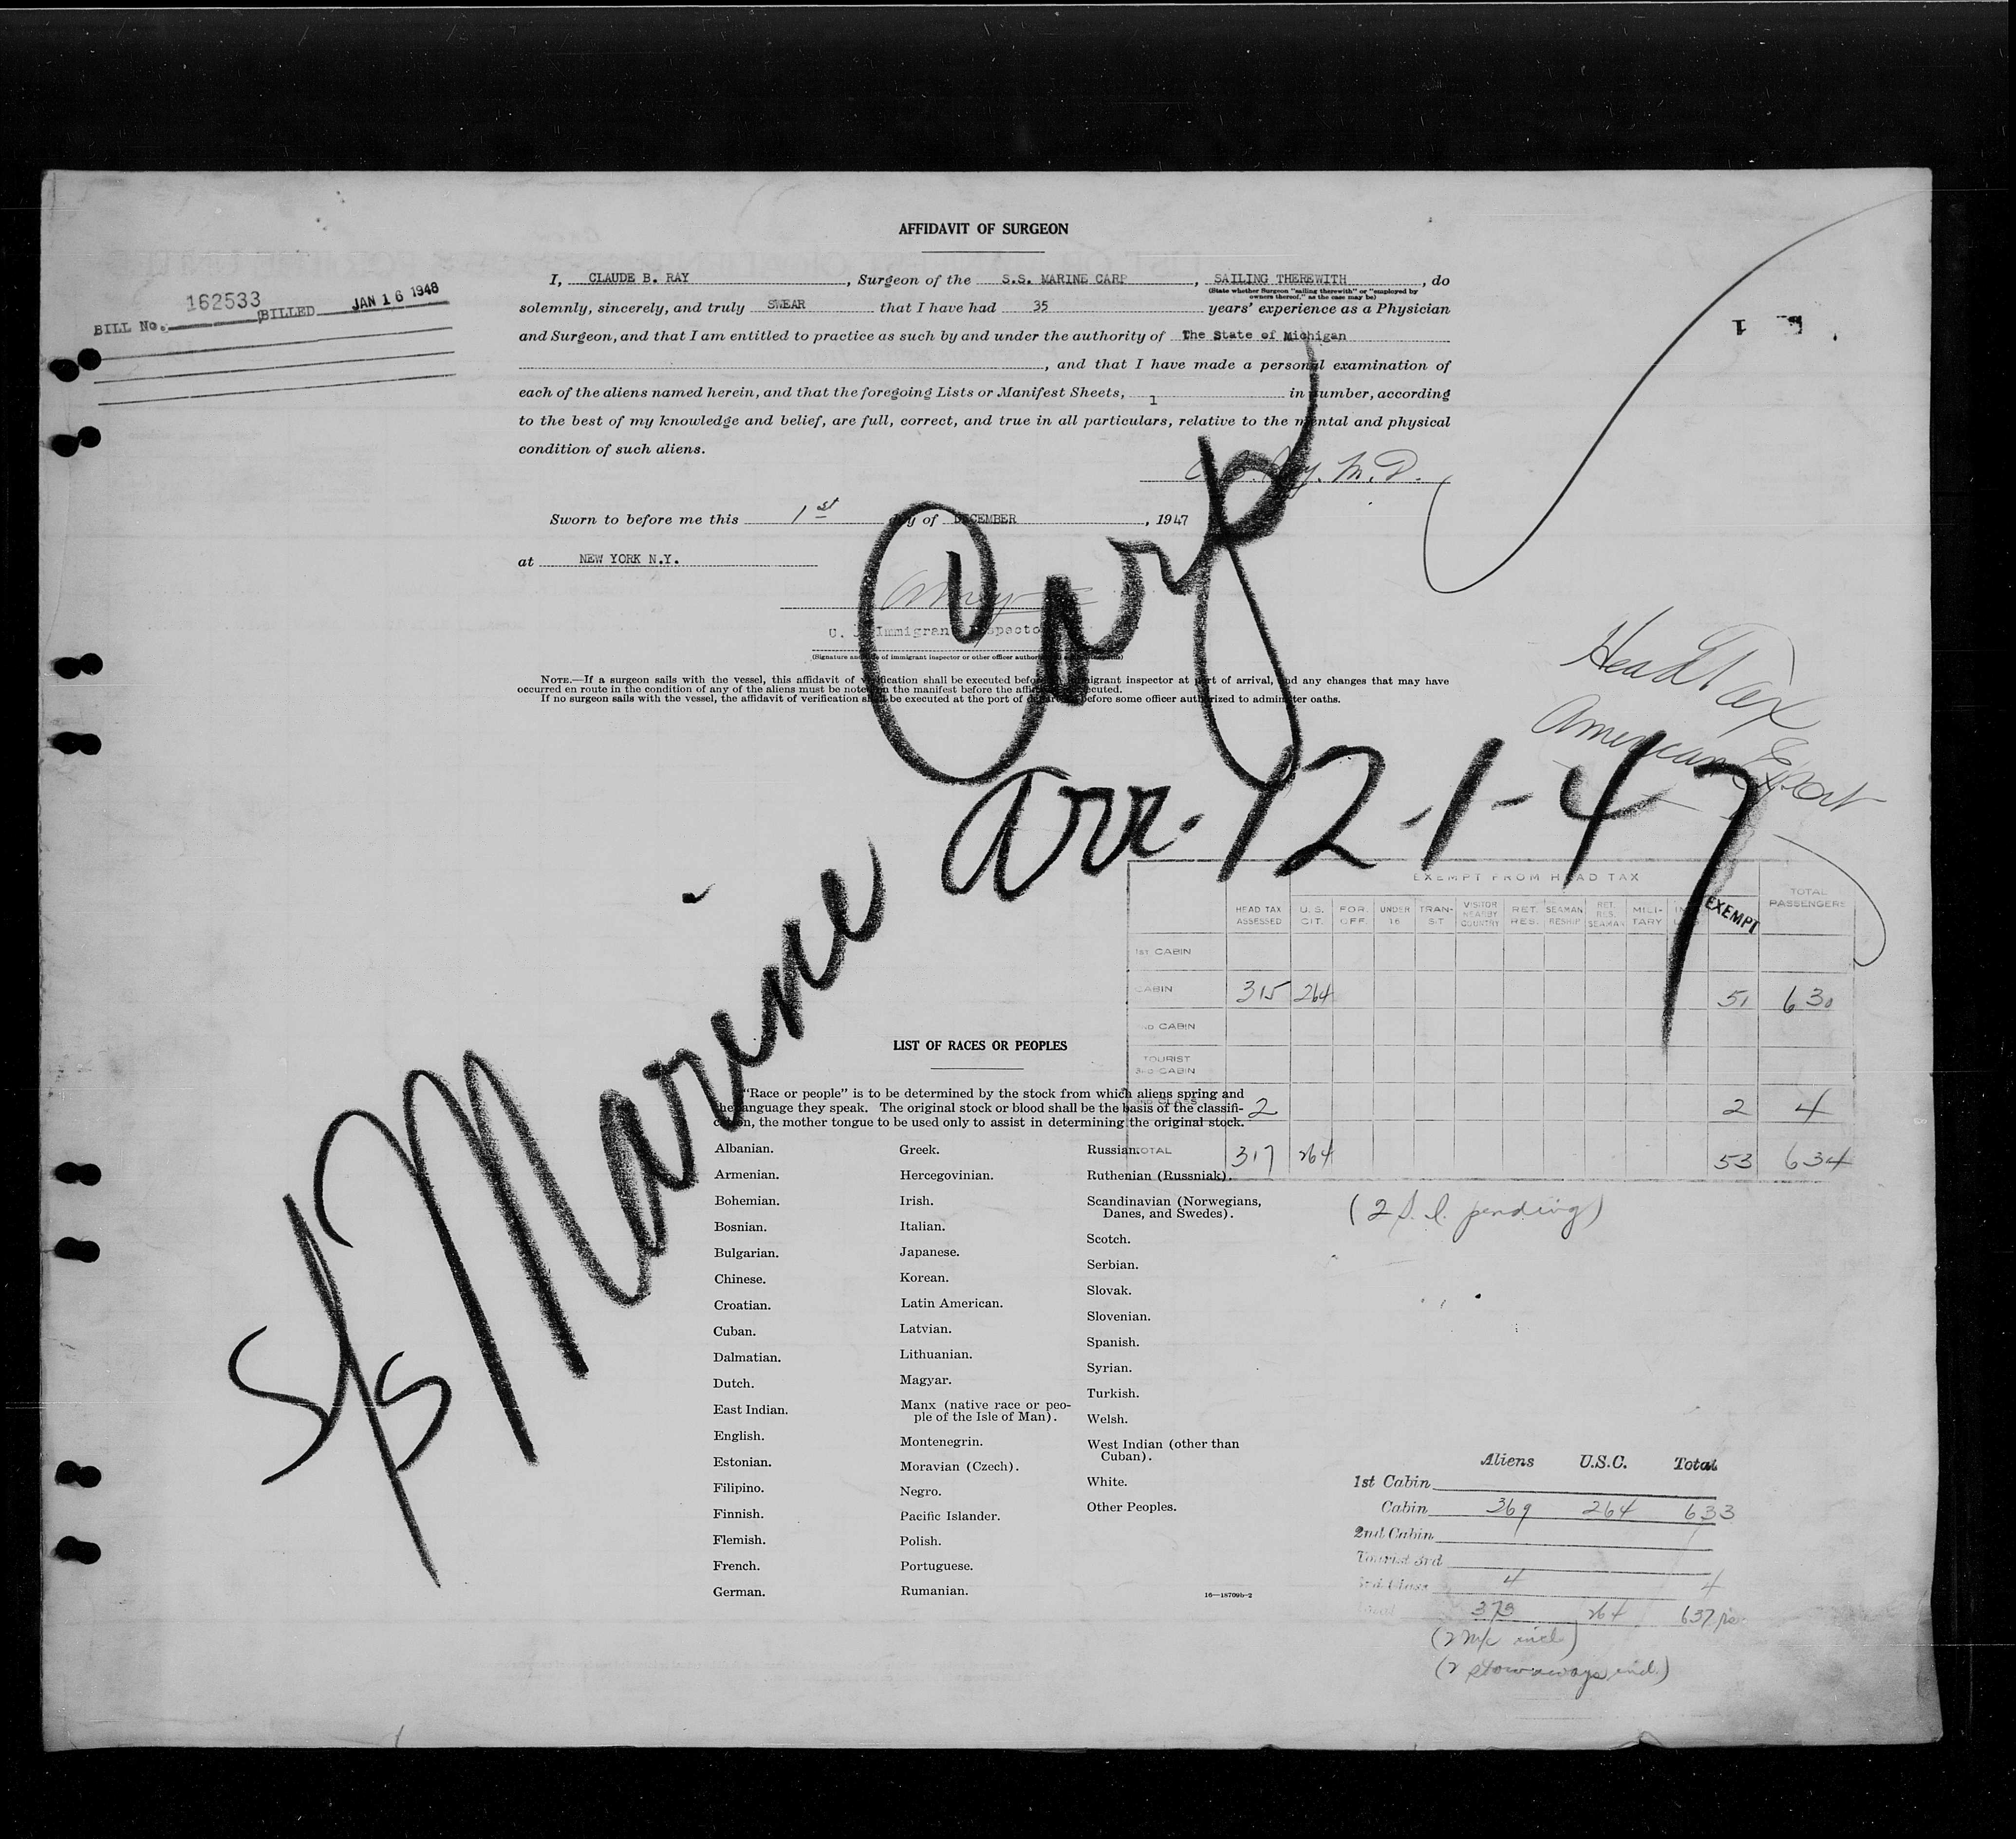 AFFIDAVIT OF SURGEON
BILL No. 162533 BILLED JAN 16 1948
I, CLAUDE B. RAY, Surgeon of the S.S. MARINE CARP, SAILING THEREWITH, do
(State whether Surgeon "sailing therewith" or "employed by
owners thereof," as the case may be)
solemnly, sincerely, and truly SWEAR that I have had 35 years' experience as a Physician
and Surgeon, and that I am entitled to practice as such by and under the authority of The State of Michigan
, and that I have made a personal examination of
each of the aliens named herein, and that the foregoing Lists or Manifest Sheets, 1 in number, according
to the best of my knowledge and belief, are full, correct, and true in all particulars, relative to the mental and physical
condition of such aliens.
M.D.
Sworn to before me this 1st day of DECEMBER, 1947
at NEW YORK N.Y.
U. S. Immigrant Inspector
(Signature and title of immigrant inspector or other officer
NOTE.—If a surgeon sails with the vessel, this affidavit of verification shall be executed before immigrant inspector at port of arrival, and any changes that may have
occurred en route in the condition of any of the aliens must be noted on the manifest before the affidavit is executed.
If no surgeon sails with the vessel, the affidavit of verification shall be executed at the port of departure before some officer authorized to administer oaths.
S/S Marine Carp
arr- 12-1-47
Head Tax
American Export
EXEMPT FROM HEAD TAX
HEAD TAX ASSESSED U.S. CIT. FOR. OFF. UNDER 16 TRANSIT VISITOR NEARBY COUNTRY RET. RES. SEAMAN RESHIP RET. RES. SEAMAN MILITARY EXEMPT TOTAL PASSENGERS
1ST CABIN
CABIN 315 264 51 630
2ND CABIN
TOURIST
3RD CABIN
3RD CLASS 2 2 4
TOTAL 317 264 53 634
(2 S.I. pending)
LIST OF RACES OR PEOPLES
"Race or people" is to be determined by the stock from which aliens spring and
the language they speak. The original stock or blood shall be the basis of the classifi-
cation, the mother tongue to be used only to assist in determining the original stock.
Albanian.
Armenian.
Bohemian.
Bosnian.
Bulgarian.
Chinese.
Croatian.
Cuban.
Dalmatian.
Dutch.
East Indian.
English.
Estonian.
Filipino.
Finnish.
Flemish.
French.
German.
Greek.
Hercegovinian.
Irish.
Italian.
Japanese.
Korean.
Latin American.
Latvian.
Lithuanian.
Magyar.
Manx (native race or peo-
ple of the Isle of Man).
Montenegrin.
Moravian (Czech).
Negro.
Pacific Islander.
Polish.
Portuguese.
Rumanian.
Russian.
Ruthenian (Russniak).
Scandinavian (Norwegians,
Danes, and Swedes).
Scotch.
Serbian.
Slovak.
Slovenian.
Spanish.
Syrian.
Turkish.
Welsh.
West Indian (other than
Cuban).
White.
Other Peoples.
16—18709b-2
Aliens U.S.C. Total
1st Cabin
Cabin 369 264 633
2nd Cabin
Tourist 3rd
3rd Class 4 4
Total 373 264 637
(2 incl)
(2 stowaways incl.)